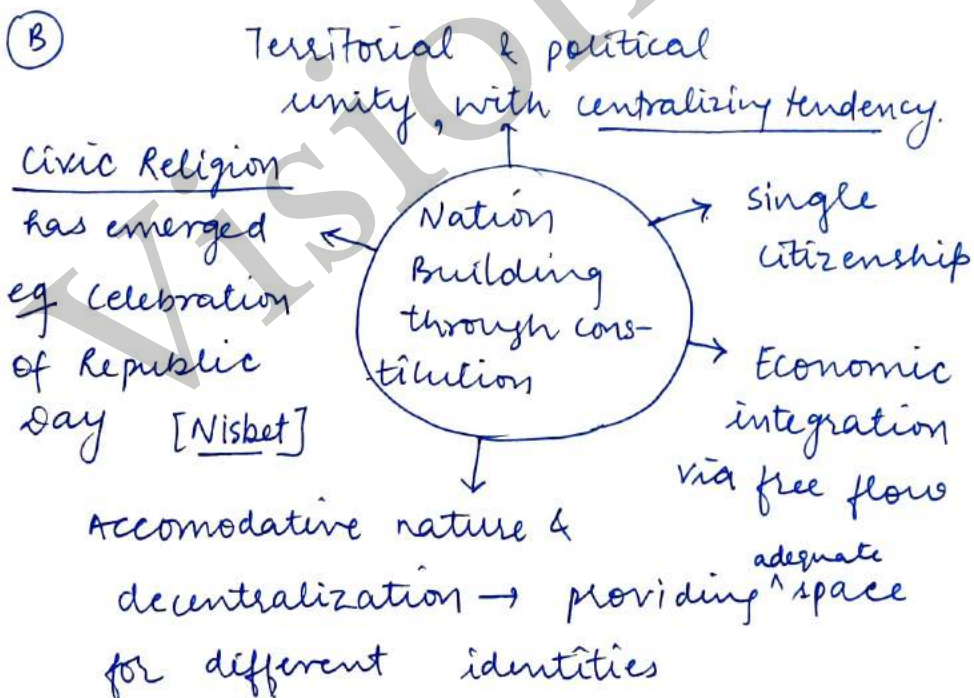 B
Territorial & political
unity, with centralizing tendency.
Civic Religion
has emerged
eg Celebration
of Republic
Day [Nisbet]
Nation
Building
through cons-
titution
single
citizenship
Economic
integration
via free flow
Accomodative nature &
decentralization → providing ^adequate space
for different identities
Vision